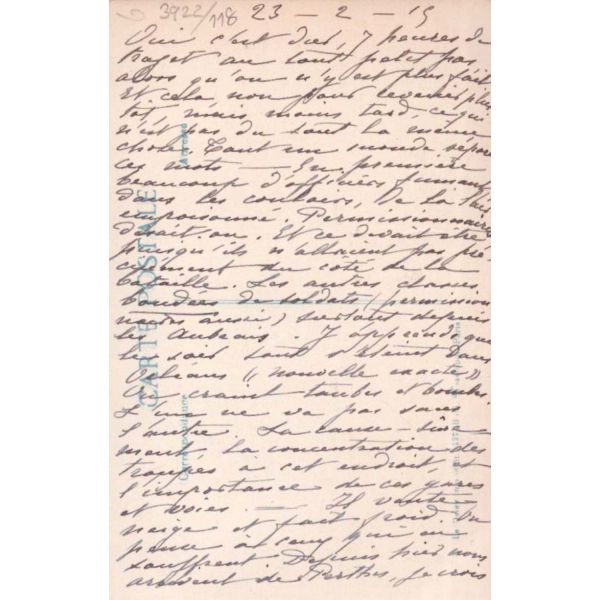 3922/118 23 - 2 - 15
Oui c'est dur, 7 heures de
trajet au tout petit pas
alors qu'on n'y est plus fait
Et cela, non pour revenir plus
tôt, mais moins tard, ce qui
n'est pas du tout la même
chose. Tout un monde sépare
ces mots — En première
beaucoup d'officiers fumant
dans les couloirs, de la
empoisonné. Permissionnaires
disait-on. Et ce devait être
puisqu'ils n'allaient pas pré
cisément du côté de la
bataille. Les autres classes
bondées de soldats (permission
naires aussi) surtout depuis
les Aubrais. J'apprends que
le soir tout s'éteint dans
Orléans (« nouvelle exacte »)
On craint taubes et bombes
L'une ne va pas sans
l'autre. La cause - sûre
ment la concentration des
troupes à cet endroit, et
l'importance de ces gares
et voies. — Il vente
neige et fait froid. On
pense à ceux qui en
souffrent. Depuis hier nous
arrivent de Perthes, je crois
CARTE POSTALE
Correspondance
Adresse